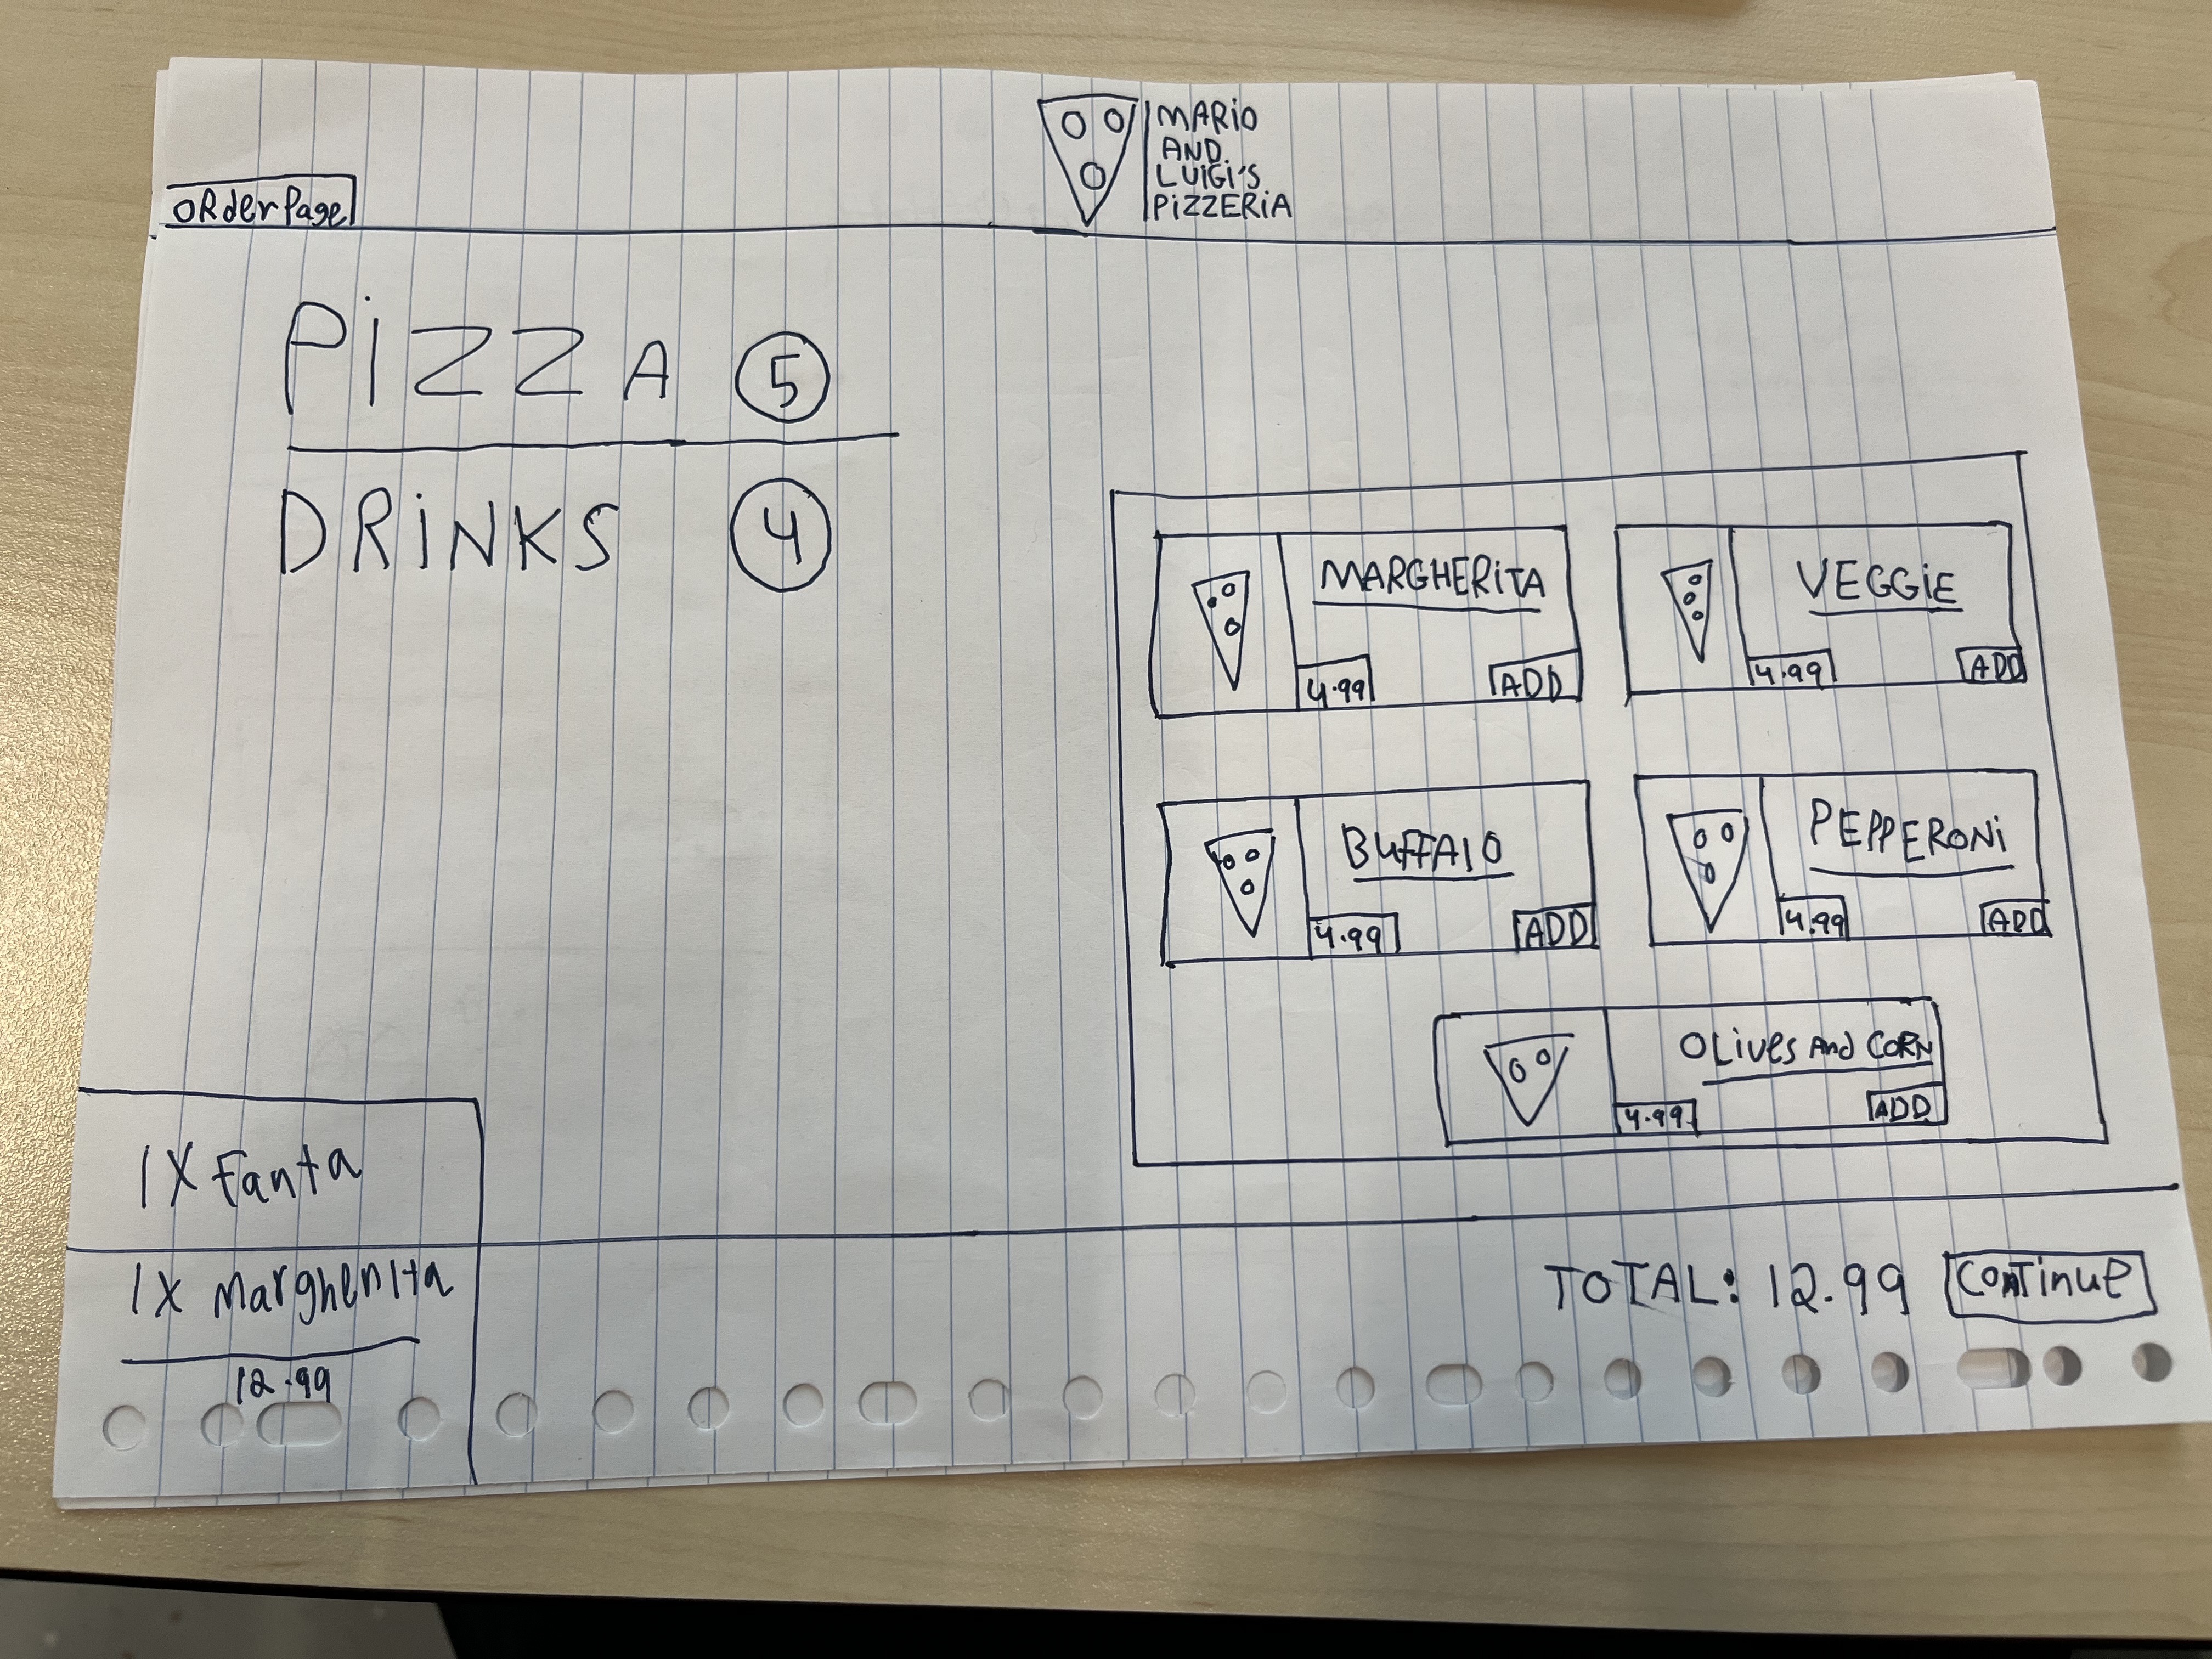 MARiO
AND
LUIGI'S
PiZZERiA
ORderPage
PiZZA 5
DRiNKS 4
MARGHERiTA
4.99 ADD
VEGGiE
4.99 ADD
BUFFAlO
4.99 ADD
PEPPERONi
4.99 ADD
OLives And CORN
4.99 ADD
1X Fanta
1X Margherita
12.99
TOTAL: 12.99 CONTinue